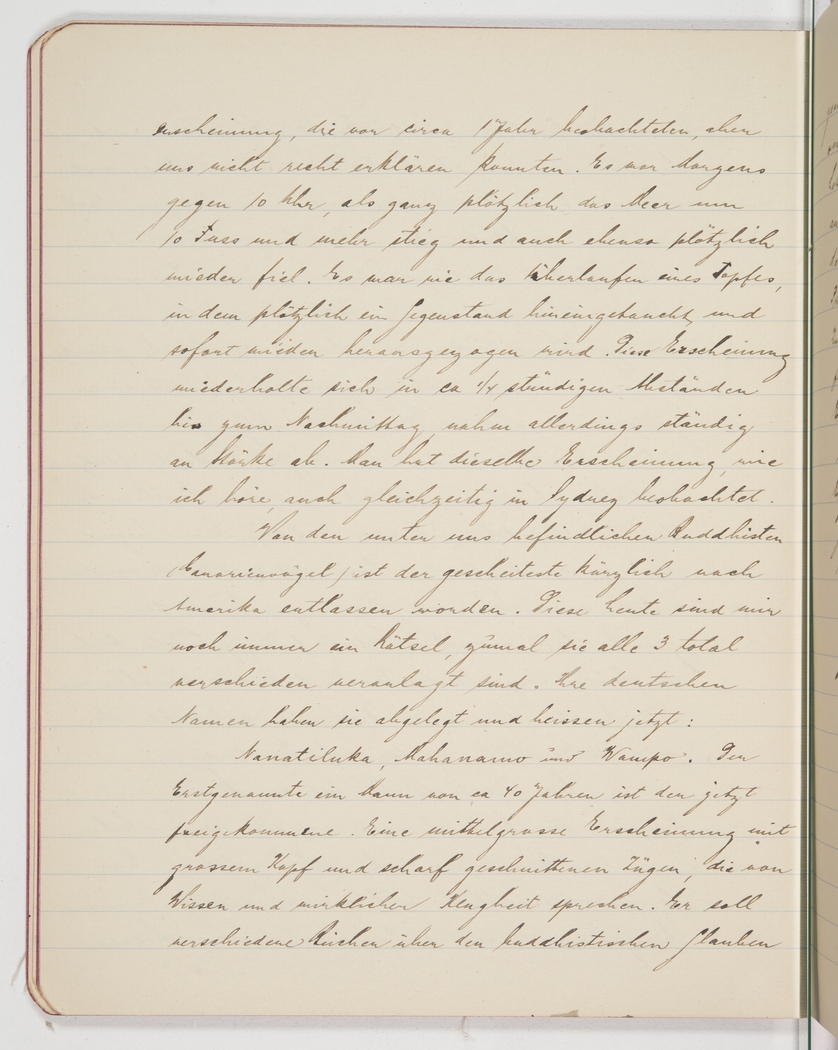 erscheinung, die vor circa 1 Jahr beobachteten, aber
uns nicht recht erklären konnten. Es war Morgens
gegen 10 Uhr, als ganz plötzlich das Meer um
10 Fuss und mehr stieg und auch ebenso plötzlich
wieder fiel. Es war wie das Überlaufen eines Topfes,
in dem plötzlich ein Gegenstand hineingetaucht, und
sofort wieder herausgezogen wird. Diese Erscheinung
wiederholte sich in ca 1/4 stündigen Abständen
bis zum Nachmittag, nahm allerdings ständig
an Stärke ab. Man hat dieselbe Erscheinung, wie
ich höre, auch gleichzeitig in Sydney beobachtet.
Von den unter uns befindlichen Buddhisten
(Canarienvögel) ist der gescheiteste kürzlich nach
Amerika entlassen worden. Diese Leute sind mir
noch immer ein Rätsel, zumal sie alle 3 total
verschieden veranlagt sind. Ihre deutschen
Namen haben sie abgelegt und heissen jetzt:
Nanatiluka, Mahanamo und Wampo. Der
Erstgenannte ein Mann von ca 40 Jahren ist der jetzt
freigekommene. Eine mittelgrosse Erscheinung mit
grossem Kopf und scharf geschnittenen Zügen, die von
Wissen und wirklicher Klugheit sprechen. Er soll
verschiedene Bücher über den buddhistischen Glauben